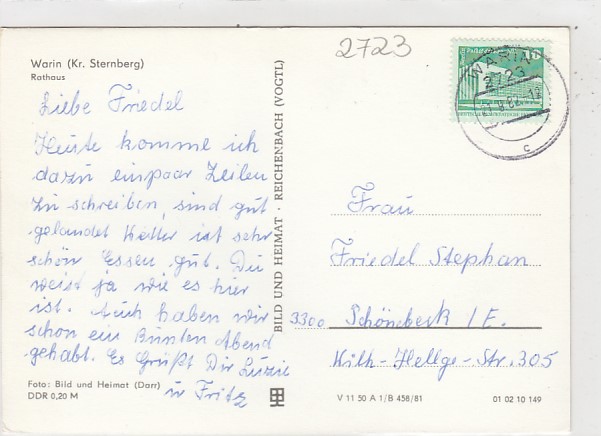 2723
Warin (Kr. Sternberg)
Rathaus
Liebe Friedel
Heute komme ich
dazu ein paar Zeilen
zu schreiben, sind gut
gelandet Wetter ist sehr
schön Essen gut. Du
weist ja wie es hier
ist. Auch haben wir
schon ein Bunten Abend
gehabt. Es Grüßt Dir Luzie
u Fritz
Foto: Bild und Heimat (Darr)
DDR 0,20 M
BILD UND HEIMAT · REICHENBACH (VOGTL)
WARIN
2723
c
10
Frau
Friedel Stephan
3300 Schönebeck /E.
Wilh-Hellge-Str. 305
V 11 50 A 1/B 458/81
01 02 10 149